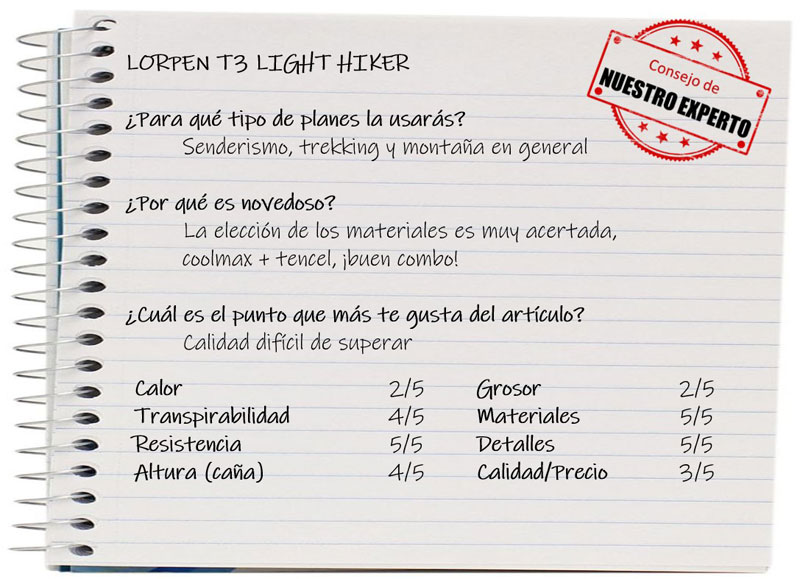 LORPEN T3 LIGHT HIKER
Consejo de
NUESTRO EXPERTO
¿Para qué tipo de planes la usarás?
Senderismo, trekking y montaña en general
¿Por qué es novedoso?
La elección de los materiales es muy acertada,
coolmax + tencel, ¡buen combo!
¿Cuál es el punto que más te gusta del artículo?
Calidad difícil de superar
Calor 2/5 Grosor 2/5
Transpirabilidad 4/5 Materiales 5/5
Resistencia 5/5 Detalles 5/5
Altura (caña) 4/5 Calidad/Precio 3/5